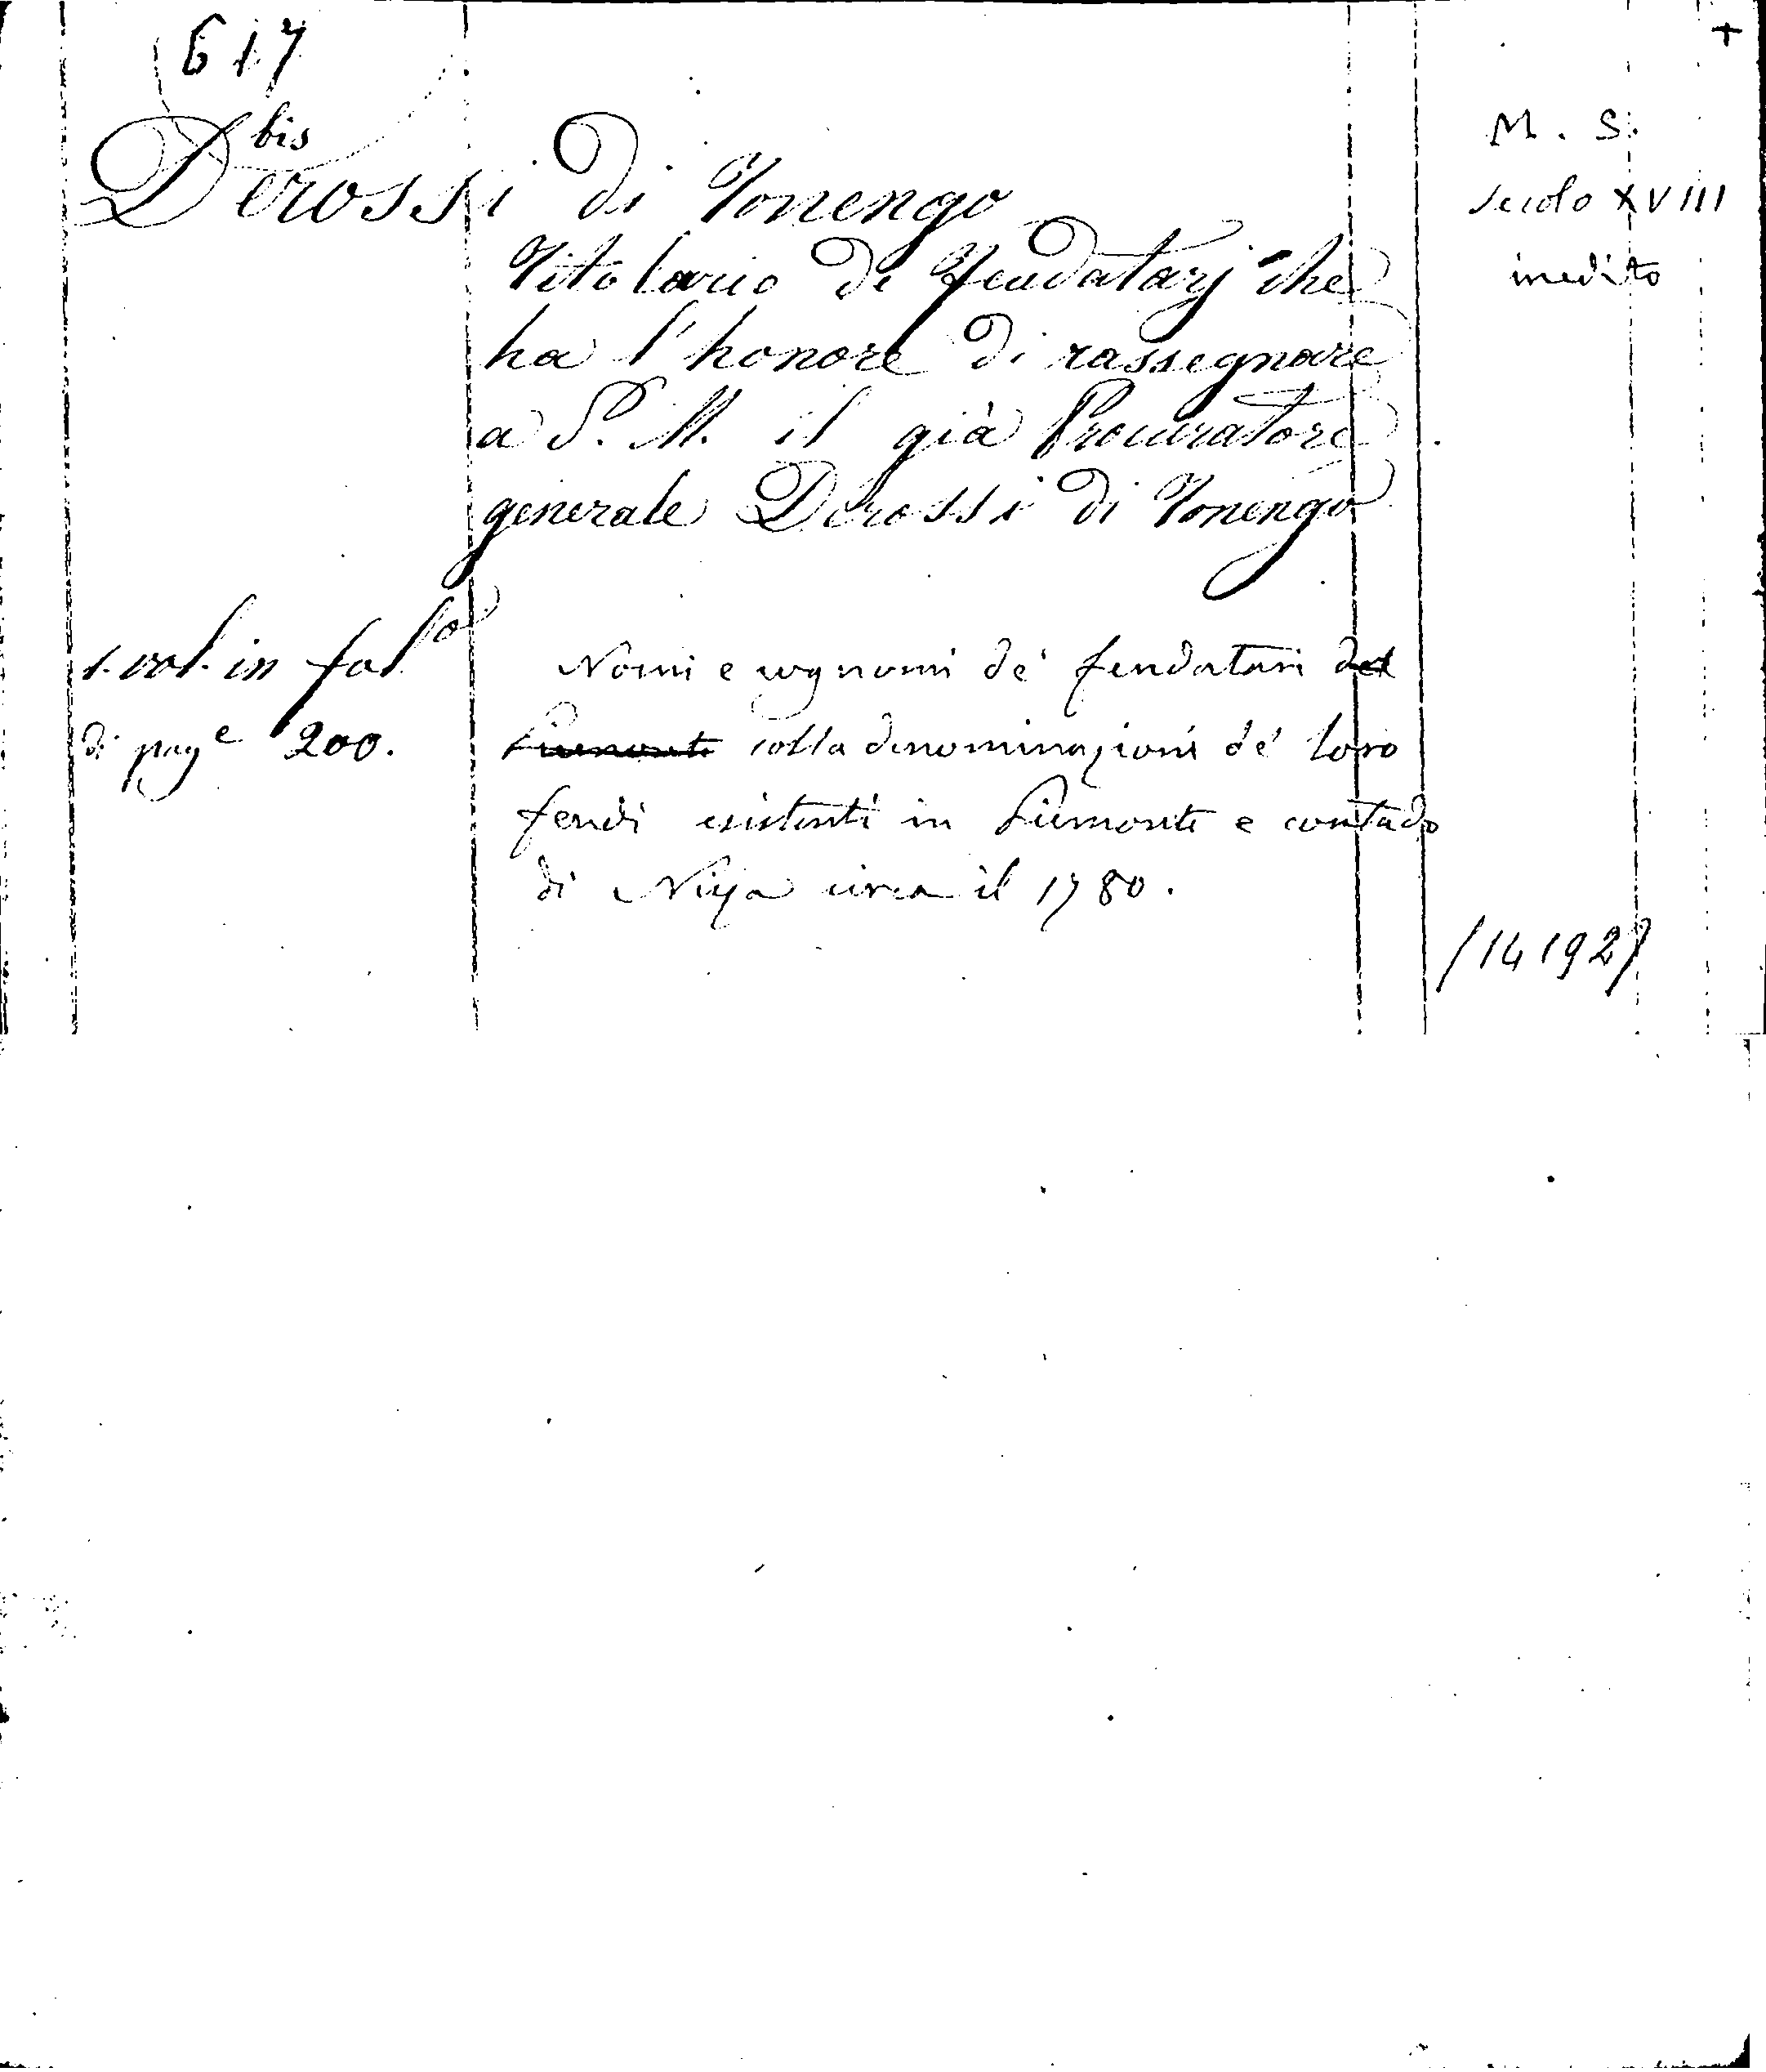 617
bis
+
Derossi di Tonengo
M. S.
secolo XVIII
inedito
Titolario de Feudatarj che
ha l'honore di rassegnare
a S. M. il già Procuratore
generale Derossi di Tonengo
1. vol. in fol.º
di pag.e 200.
Nomi e cognomi de' feudatari del
Piemonte colla denominazioni de' loro
feudi esistenti in Piemonte e contado
di Nizza circa il 1780.
(14192)